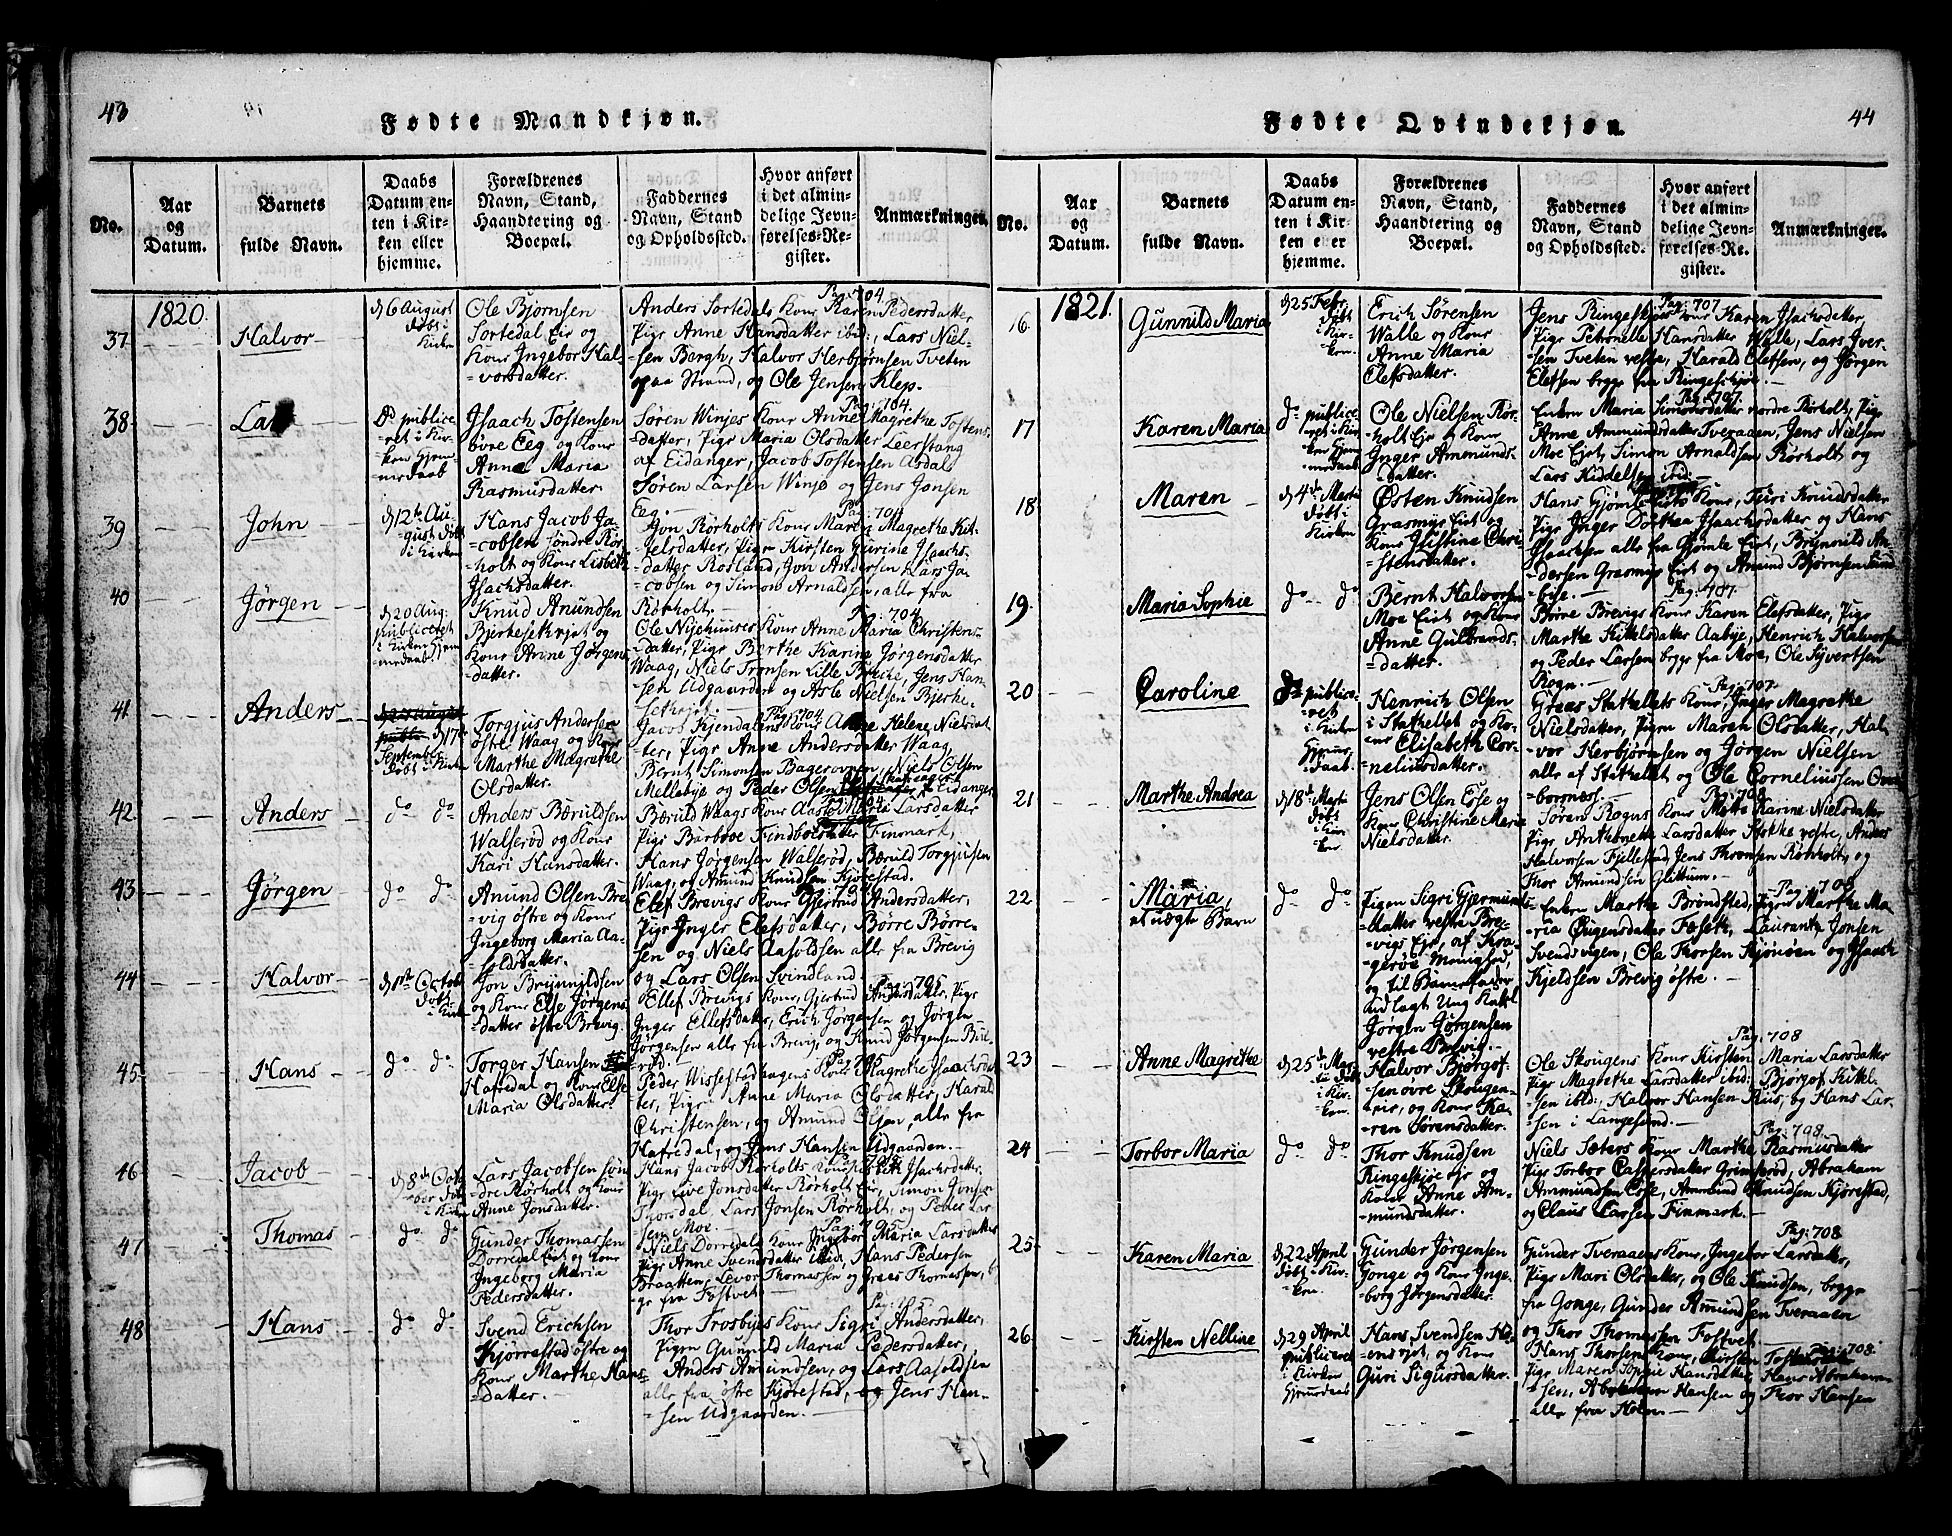 43
Fødte Mandkjøn.
No.
Aar
og
Datum.
Barnets
fulde Navn.
Daabs
Datum en-
ten i Kir-
ken eller
hjemme.
Forældrenes
Navn, Stand,
Haandtering og
Boepæl.
Faddernes
Navn, Stand
og Opholdssted.
Hvor anført
i det almin-
delige Jevn-
førelses-Re-
gister.
Anmærkninger.
1820.
37
Halvor
d 6 August
døbt i
Kirken
Ole Bjørnsen
Sortedal Eir og
Kone Ingebor Hal-
vorsdatter.
Pag: 704.
Anders Sortedals Kone Karen Pedersdatter
Pige Anne Hansdatter ibid:, Lars Niel-
sen Bergh, Halvor Herbjørnsen Tveten
paa Strand, og Ole Jensen Klep.
38
Lars
do publice-
ret i Kir-
ken Hjem-
medaab
Isaach Tostensen
øvre Eeg og Kone
Anne Maria
Rasmusdatter.
Pag: 704.
Søren Winjes Kone Anne Magrethe Tostens-
datter, Pige Maria Olsdatter Leerstang
af Eidanger, Jacob Tostensen Asdal
Søren Larsen Winje og Jens Jonsen
Eeg.
39
John
d 12te Au-
gust døbt
i Kirken
Hans Jacob Ja-
cobsen søndre Rør-
holt og Kone Lisbeth
Isachsdatter.
Pag: 704
Jon Rørholts Kone Maren Magrethe Kit-
telsdatter, Pige Kirsten Gurine Isaachs-
datter Rosland, Jon Andersen, Lars Ja-
cobsen og Simon Arnaldsen, alle fra
Rørholt.
40
Jørgen
d 20 Aug:
publiceret
i Kirken Hjem-
medaab
Knud Anundsen
Bjerkeset ejet og
Kone Anne Jørgens-
datter.
Pag: 704
Ole Nijehuuses Kone Anne Maria Christens-
datter, Pige Berthe Karine Jørgensdatter
Waag, Niels Tronsen Lille Brekke, Jens Han-
sen Udgaarden og Asle Nielsen Bjerke-
set ejet.
41
Anders
d 17de
September
døbt i Kirken
Torgjus Andersen
østre Waag og Kone
Marthe Magrethe
Olsdatter.
Pag: 704
Jacob Kjendalens Kone Anne Helene Nielsdat-
ter, Pige Anne Andersdatter Waag,
Bernt Simonsen Bagerovnen, Niels Olsen
Mellebye og Peder Olsen Skavager i Eidanger
42
Anders
do do
Anders Bæruldsen
Walserød og Kone
Kari Hansdatter.
Bæruld Waags Kone Aaste Maria Larsdatter
Pige Barboe Findbosdatter Finmark,
Hans Jørgensen Walserød, Bæruld Torgjusen
Waag, og Amund Knudsen Kjørestad.
43
Jørgen
do do
Anund Olsen Bre-
vig østre og Kone
Ingeborg Maria Aa-
soldsdatter.
Pag: 704.
Elef Brevigs Kone Gjertrud Andersdatter,
Pige Inger Elefsdatter, Børre Børre-
sen og Niels Aasoldsen alle fra Brevig
og Lars Olsen Svindland.
44
Halvor
d 1ste Octob
døbt i
Kirken
Jon Brynnildsen
og Kone Else Jørgens-
datter østre Brevig
Pag: 705
Ellef Brevigs Kone, Gjertrud Andersdatter, Pige
Inger Ellefsdatter, Erich Jørgensen og Jørgen
Jørgensen alle fra Brevig, og Knud Jørgensen Bue-
rød.
45
Hans
do do
Torger Hansen
Hafredal og Kone Else
Maria Olsdatter.
Pag: 705
Peder Wissestadhagens Kone Magrethe Isaachsdat-
ter, Pige Anne Maria Olsdatter, Harald
Christensen, og Amund Olsen, alle fra
Hafredal, og Jens Hansen Udgaarden.
46
Jacob
d 8de Octo-
ber døbt
i Kirken
Lars Jacobsen søn-
dre Rørholt og Kone
Anne Jonsdatter.
Pag: 705
Hans Jacob Rørholts Kone Lisbeth Isachsdatter,
Pige Live Jonsdatter Rørholt Eir, Simon Jonsen
Thorsdal, Lars Jonsen Rørholt, og Peder Lar-
sen Moe.
47
Thomas
do do
Gunder Thomassen
Dorredal Eiet og Kone
Ingeborg Maria
Pedersdatter.
Pag: 705
Niels Dorredals Kone Ingebor Maria Larsdatter
Pige Anne Svensdatter ibid, Hans Pedersen
Braatten, Levor Thomassen og Graes Thomassen, b-
ge fra Fostvet.
48
Hans
do do
Svend Erichsen
Kjørrestad østre og
Kone Marthe Hans-
datter.
Pag: 705
Thor Trosbyes Kone Sigri Andersdatter,
Pigen Gunnild Maria Pedersdatter,
Anders Amundsen, og Lars Aasoldsen
alle fra østre Kjørestad, og Jens Han-
sen Udgaarden.
44
Fødte Qvindekjøn.
No.
Aar
og
Datum.
Barnets
fulde Navn.
Daabs
Datum en-
ten i Kir-
ken eller
hjemme.
Forældrenes
Navn, Stand,
Haandtering og
Boepæl.
Faddernes
Navn, Stand
og Opholdssted.
Hvor anført
i det almin-
delige Jevn-
førelses-Re-
gister.
Anmærkninger.
1821.
16
Gunnild Maria
d 25 Febr.
døbt
i Kir-
ken.
Erich Sørensen
Walle og Kone
Anne Maria
Elefsdatter.
Pag: 707
Jens Ringeskjøes Kone Karen Isachsdatter
Pige Petronelle Hansdatter Walle, Lars Iver-
sen Tveten vestre, Harald Elefsen, og Jørgen
Elefsen begge fra Ringeskjøe.
17
Karen Maria
do publice-
ret i Kir-
ken Hjem-
medaab
Ole Nielsen Rør-
holt Eje og Kone
Inger Ammunds-
datter.
Pag: 707.
Enken Maria Simonsdatter nordre Rørholt, Pige
Anne Ammundsdatter Tveraaen, Jens Nielsen
Moe Ejet, Simon Arnaldsen Rørholt og
Lars Kiddelsen ibid.
18
Maren
d 4de Martii
døbt i
Kirken
Østen Knudsen
Grasmyr Eiet og
Kone Justine Chri-
stensdatter.
Hans Gjømle Eiets Kone, Feiri Knudsdatter
Pige Inger Dorthea Isaachsdatter og Hans
Isaachsen alle fra Gjømle Eiet, Brynnild An-
dersen Grasmyr Eiet og Amund Bjørnsen Sund-
bye.
19.
Maria Sophie
do do
Bernt Halvorsen
Moe Eiet og Kone
Anne Gulbrands-
datter.
Pag: 707.
Børre Brevigs Kone Karen Elefsdatter, Pige
Marthe Kittelsdatter Aabye, Henrich Halvorsen
og Peder Larsen begge fra Moe, Ole Syvertsen
Rogn.
20
Caroline
do publice-
ret
i Kirken
Hjemme-
daab.
Henrich Olsen
i Stathellet og Ko-
ne Elisabeth Cor-
neliusdatter.
Pag: 707
Graas Stathellets Kone, Inger Magrethe
Nielsdatter, Pigen Maren Olsdatter, Hal-
vor Herbjørnsen og Jørgen Nielsen
alle af Stathellet og Ole Corneliussen Over-
borsnæss.
21
Marthe Andrea
d 18de Martii
døbt
i Kir-
ken
Jens Olsen Esse og
Kone Christine Maria
Nielsdatter.
Pag: 708
Søren Rognes Kone Mette Karine Nielsdatter
Pige Anthonette Larsdatter Stokke vestre, Anders
Halvorsen Fjellestad, Jens Thronsen Rørholt, og
Thor Amundsen Glittum.
22
Maria,
et uægte Barn
do do
Pigen Sigri Gjermunds-
datter vestre Bre-
vigs Eje, af Kra-
gerøe Menighed,
og til Barnefader
udlagt Ung Karl
Jørgen Jørgensen
vestre Brevig.
Pag: 708
Enken Marthe Brøndsted, Pigen Marthe Ma-
ria Ougensdatter Fosset, Laurantz Jonsen
Svendsvigen, Ole Thorsen Kjønøen og Isaach
Kjeldsen Brevig østre.
23
Anne Magrethe
d 25de Mar-
tii døbt
i Kir-
ken.
Halvor Bjørgof-
sen øvre Skougen-
eir, og Kone Ka-
ren Sørensdatter.
Pag: 708
Ole Skougens Kone Kirsten Maria Larsdatter
Pige Magrethe Larsdatter ibid: Bjørgof Kittel-
sen ibid, Halvor Hansen Riis, og Hans Lar-
sen i Langesund.
24
Torbor Maria
do do
Thor Knudsen
Ringeskjøe eje og
Kone Anne Am-
mundsdatter.
Pag: 708.
Niels Sæters Kone Marthe Rasmusdatter
Pige Torbor Caspersdatter Grimsrød, Abraham
Ammundsen Esse, Ammund Knudsen Kjørestad,
og Claus Larsen Finmark.
25
Karen Maria
d 22 April
døbt i Kir-
ken.
Gunder Jørgensen
Gonge og Kone Inge-
borg Jørgensdatter.
Pag: 708
Gunder Tveraaens Kone, Ingebor Larsdatter,
Pige Mari Olsdatter, og Ole Knudsen, begge
fra Gonge, Gunder Amundsen Tveraaen
og Thor Thomassen Fostvet
26
Kirsten Nelline
d 29 April
publiceret
i Kirken
Hjemmedaab
Hans Svendsen Ho-
ens ejet, og Kone
Guri Sigursdatter.
Pag: 708
Hans Thorsens Kone, Kirsten Tostensdatter
Pige Maren Sophie Hansdatter, Hans Abraham-
sen, Abraham Hansen og Thor Hansen
alle fra Holen.